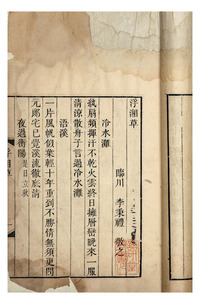 浮湘草
臨川 李秉禮 敬之
冷水灘
執扇頻揮汗不乾火雲終日擁層巒晚來一服
清涼散舟子言過冷水灘
浯溪
一片風帆似葉輕十年重到不勝情無須更問
元郎宅已覺溪流徹底清
夜過衡陽 是日立秋